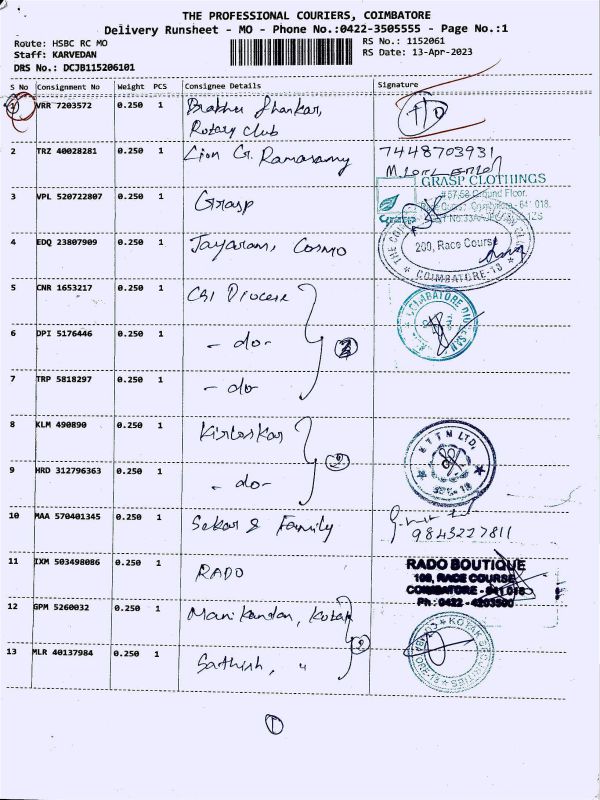 THE PROFESSIONAL COURIERS, COIMBATORE
Delivery Runsheet - MO - Phone No.:0422-3505555 - Page No.:1
Route: HSBC RC MO
RS No.: 1152061
Staff: KARVEDAN
RS Date: 13-Apr-2023
DRS No.: DCJB115206101
S No Consignment No Weight PCS Consignee Details Signature
1 VRR 7203572 0.250 1 Prabhu Shankar, T/D
Rotary Club
2 TRZ 40028281 0.250 1 Lion G. Ramasamy 7448703931
3 VPL 520722807 0.250 1 Grasp
GRASP CLOTHINGS
#57,58 Ground Floor,
4 EDQ 23807909 0.250 1 Jayaram, Cosmo
200, Race Course
COIMBATORE-18
5 CNR 1653217 0.250 1 CSI Diocese
6 DPI 5176446 0.250 1 - do-
7 TRP 5818297 0.250 1 - do-
8 KLM 490890 0.250 1 Kirloskar
9 HRD 312796363 0.250 1 - do-
10 MAA 570401345 0.250 1 Sekar & Family
9843227811
11 IXM 503498086 0.250 1 RADO
RADO BOUTIQUE
109, RACE COURSE
COIMBATORE - 641 018
Ph : 0422 - 4203500
12 GPM 5260032 0.250 1 Manikandan, Kotak
13 MLR 40137984 0.250 1 Sathish, "
1